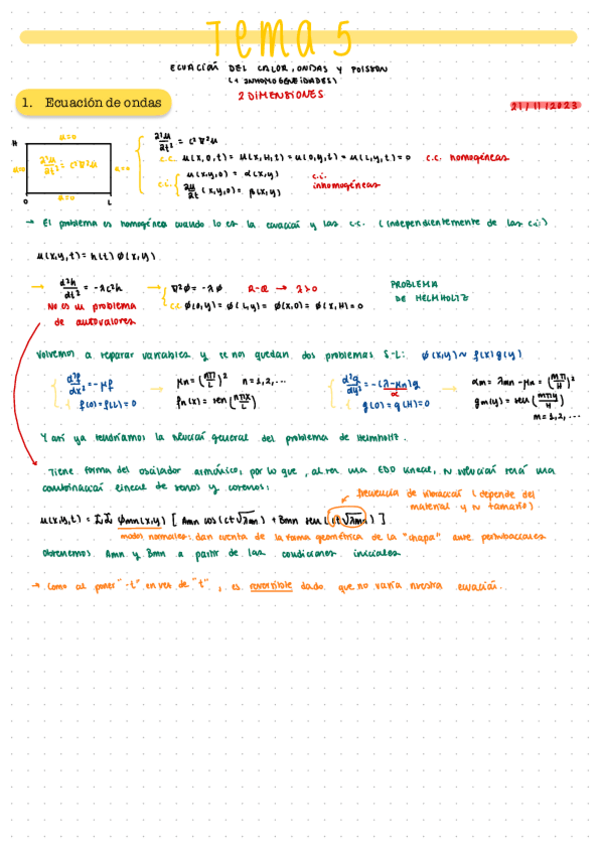 Tema 5
ECUACIÓN DEL CALOR, ONDAS Y POISSON
(+ INHOMOGENEIDADES)
2 DIMENSIONES
1. Ecuación de ondas
21/11/2023
H u=0 ∂²u/∂t² = c²∇²u u=0 u=0 0 L
∂²u/∂t² = c²∇²u
c.c. u(x,0,t) = u(x,H,t) = u(0,y,t) = u(L,y,t) = 0 c.c. homogéneas
c.i. u(x,y,0) = α(x,y) c.i. inhomogéneas
∂u/∂t (x,y,0) = β(x,y)
→ El problema es homogéneo cuando lo es la ecuación y las c.c. (independientemente de las c.i)
u(x,y,t) = h(t) ϕ(x,y)
→ d²h/dt² = -λc²h → ∇²ϕ = -λϕ R-Q → λ>0 PROBLEMA DE HELMHOLTZ
No es un problema de autovalores
c.c. ϕ(0,y) = ϕ(L,y) = ϕ(x,0) = ϕ(x,H) = 0
Volvemos a separar variables y se nos quedan dos problemas S-L: ϕ(x,y) ~ f(x)g(y)
d²f/dx² = -μf → μn = (nπ/L)² n = 1,2,...
f(0) = f(L) = 0 fn(x) = sen(nπx/L)
d²g/dy² = -(λ-μn)g → αm = λmn - μn = (mπ/H)²
α
g(0) = g(H) = 0 gm(y) = sen(mπy/H)
m = 1,2,...
Y así ya tendríamos la solución general del problema de Helmholtz.
Tiene forma del oscilador armónico, por lo que, al ser una EDO lineal, su solución será una
combinación lineal de senos y cosenos:
frecuencia de vibración (depende del
material y su tamaño)
u(x,y,t) = ΣΣ ϕmn(x,y) [Amn cos(ct√λmn) + Bmn sen(ct√λmn)]
modos normales: dan cuenta de la forma geométrica de la "chapa" ante perturbaciones
obtenemos Amn y Bmn a partir de las condiciones iniciales
→ Como al poner "-t" en vez de "t", es reversible dado que no varía nuestra ecuación.